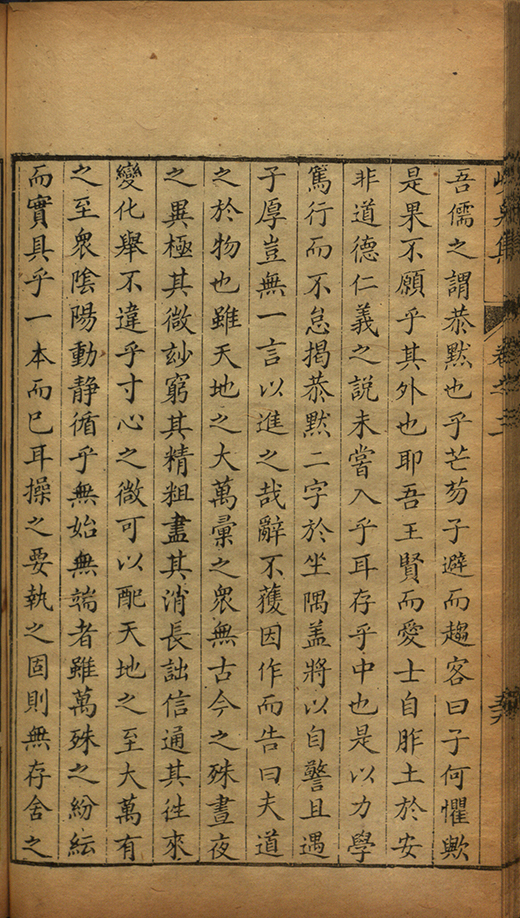 吾儒之謂恭黙也乎芒芴子避而趨客曰子何懼歟
是果不願乎其外也耶吾王賢而愛士自胙土於安
非道德仁義之說未嘗入乎耳存乎中也是以力學
篤行而不怠揭恭黙二字於坐隅盖將以自警且遇
子厚豈無一言以進之哉辭不獲因作而告曰夫道
之於物也雖天地之大萬彚之衆無古今之殊晝夜
之異極其微玅窮其精粗盡其消長詘信通其徃來
變化舉不違乎寸心之微可以配天地之至大萬有
之至衆隂陽動静循乎無始無端者雖萬殊之紛紜
而實具乎一本而已耳操之要執之固則無存舍之